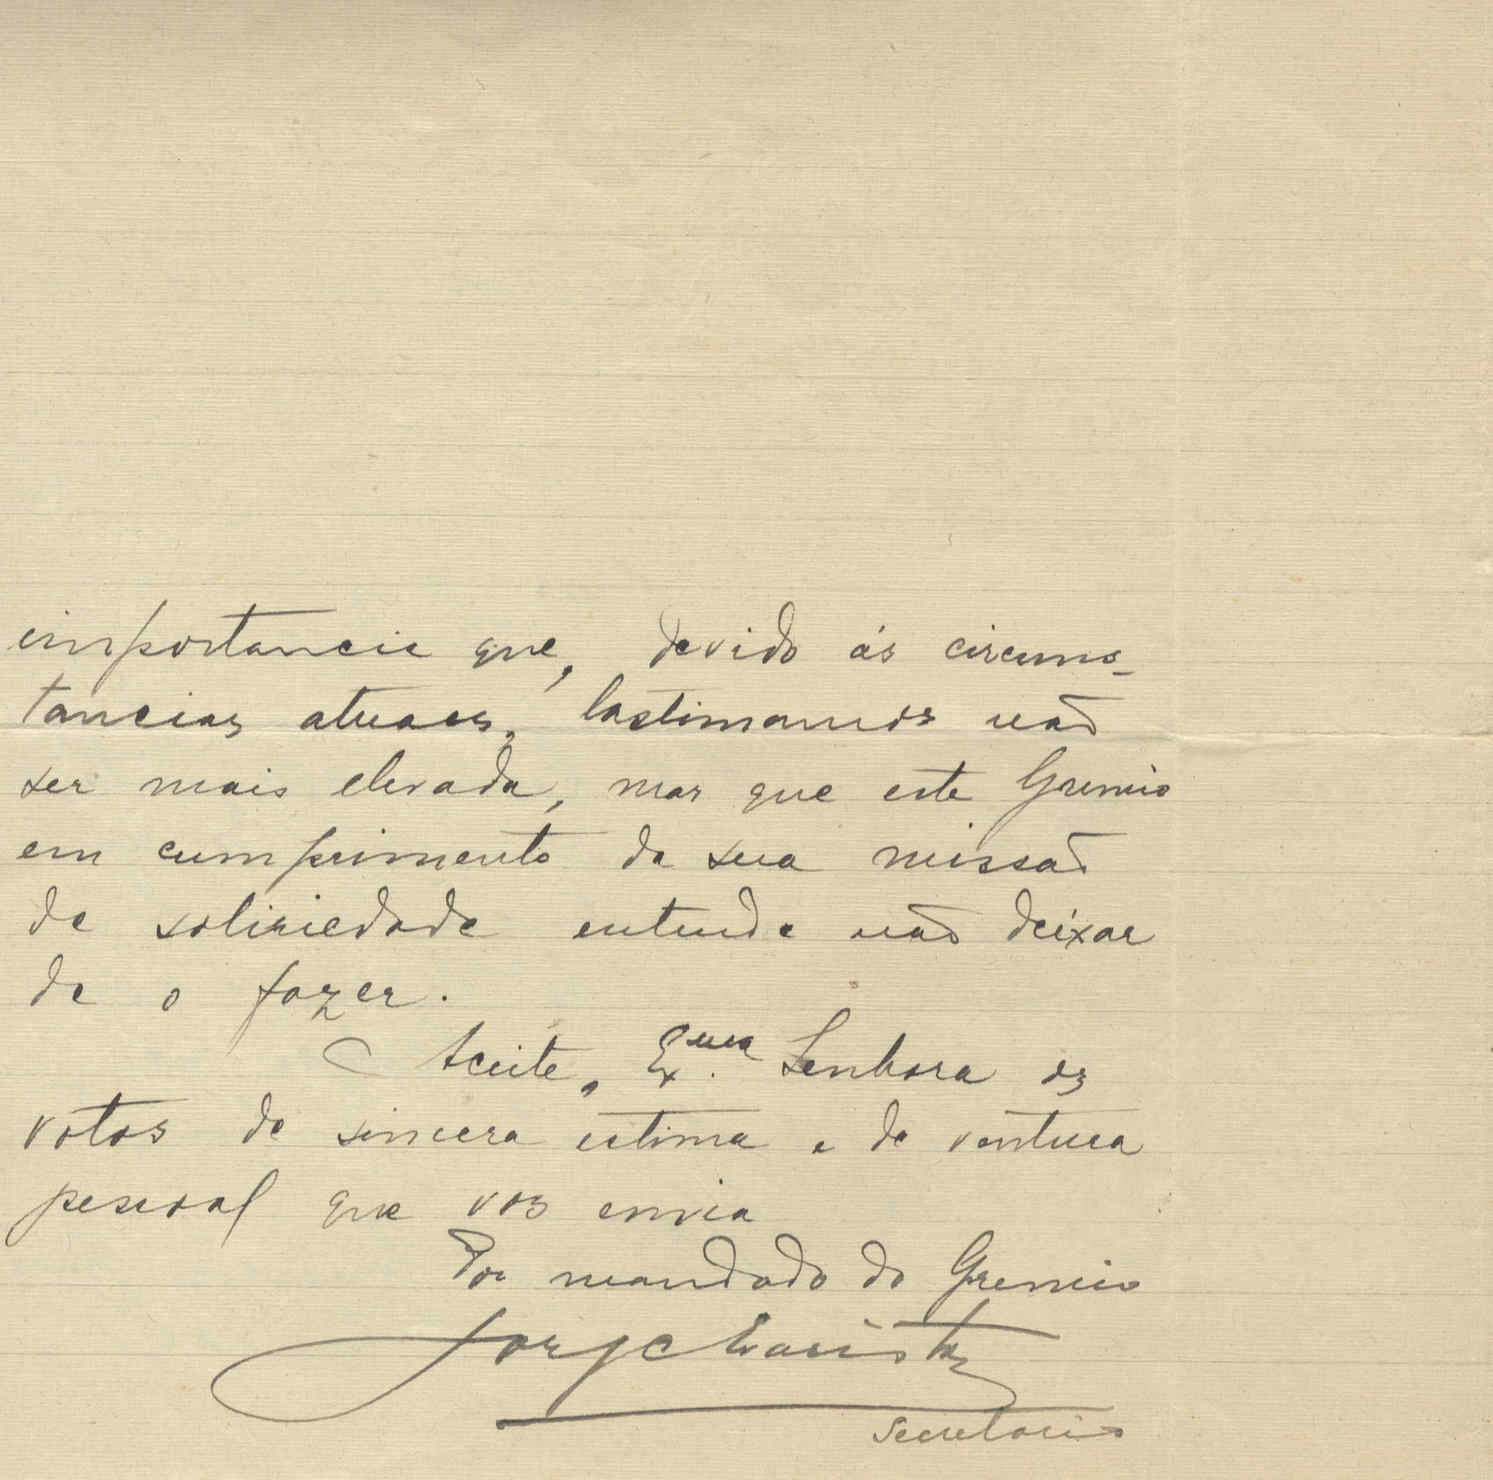 importancia que, devido ás circums-
tancias atuaes, lastimamos não
ser mais elevada, mas que este Gremio
em cumprimento da sua missão
de soliriedade entende não deixar
de o fazer.
Aceite, Exma. Senhora os
votos de sincera estima e de ventura
pessoal que vos envia
Por mandado do Gremio
Jorge Evaristo
Secretario